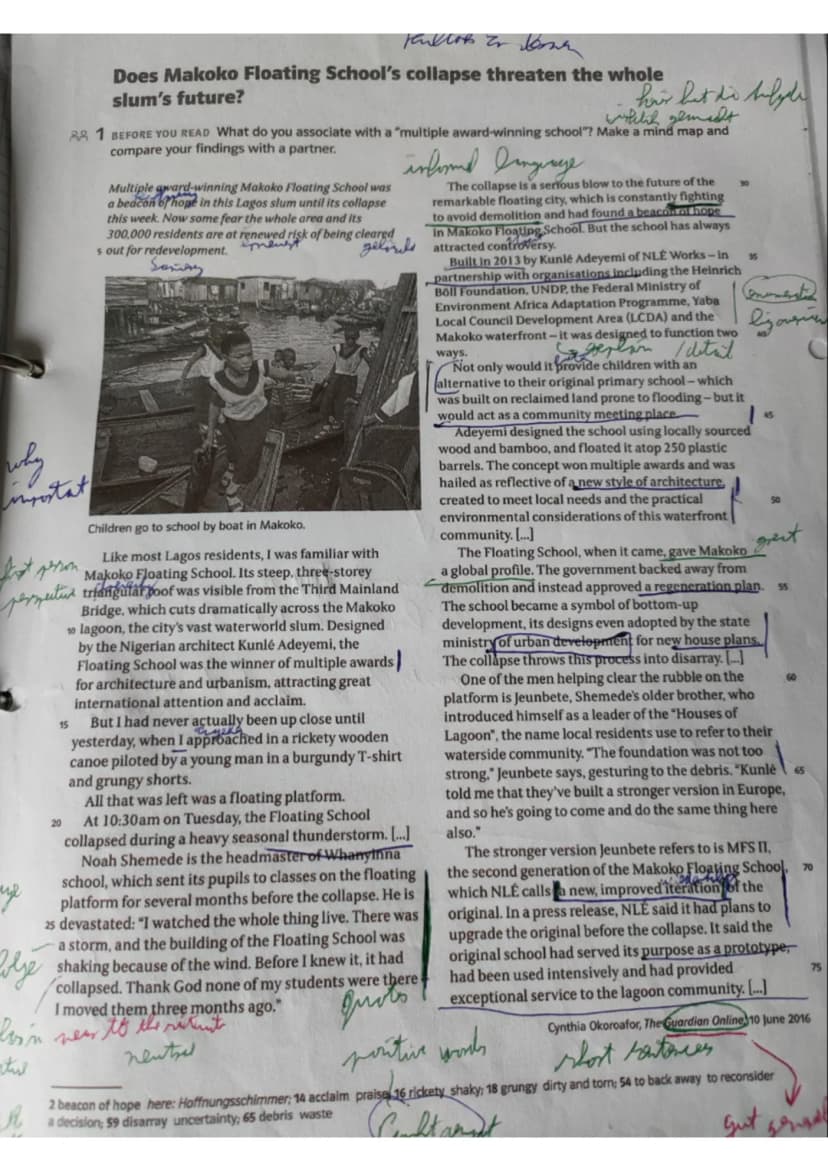 Does Makoko Floating School's collapse threaten the whole
slum's future?
1 BEFORE YOU READ What do you associate with a "multiple award-winning school"? Make a mind map and
compare your findings with a partner.
informal language
Multiple award-winning Makoko Floating School was
a beacon of hope in this Lagos slum until its collapse
this week. Now some fear the whole area and its
300,000 residents are at renewed risk of being cleared
5 out for redevelopment.
Children go to school by boat in Makoko.
why
important
first person
perspective
Like most Lagos residents, I was familiar with
Makoko Floating School. Its steep, three-storey
triangular roof was visible from the Third Mainland
Bridge, which cuts dramatically across the Makoko
10 lagoon, the city's vast waterworld slum. Designed
by the Nigerian architect Kunlé Adeyemi, the
Floating School was the winner of multiple awards
for architecture and urbanism, attracting great
international attention and acclaim.
15 But I had never actually been up close until
yesterday, when I approached in a rickety wooden
canoe piloted by a young man in a burgundy T-shirt
and grungy shorts.
All that was left was a floating platform.
20 At 10:30am on Tuesday, the Floating School
collapsed during a heavy seasonal thunderstorm. [...]
Noah Shemede is the headmaster of Whanyinna
school, which sent its pupils to classes on the floating
platform for several months before the collapse. He is
25 devastated: "I watched the whole thing live. There was
a storm, and the building of the Floating School was
shaking because of the wind. Before I knew it, it had
collapsed. Thank God none of my students were there
I moved them three months ago."
quotes
neutral
The collapse is a serious blow to the future of the 30
remarkable floating city, which is constantly fighting
to avoid demolition and had found a beacon of hope
in Makoko Floating School. But the school has always
attracted controversy.
Built in 2013 by Kunlé Adeyemi of NLÉ Works – in 35
partnership with organisations including the Heinrich
Böll Foundation, UNDP, the Federal Ministry of
Environment Africa Adaptation Programme, Yaba
Local Council Development Area (LCDA) and the
Makoko waterfront – it was designed to function two 40
ways.
explain / detail
Not only would it provide children with an
alternative to their original primary school – which
was built on reclaimed land prone to flooding – but it
would act as a community meeting place. 45
Adeyemi designed the school using locally sourced
wood and bamboo, and floated it atop 250 plastic
barrels. The concept won multiple awards and was
hailed as reflective of a new style of architecture,
created to meet local needs and the practical 50
environmental considerations of this waterfront
community. [...]
The Floating School, when it came, gave Makoko
great
a global profile. The government backed away from
demolition and instead approved a regeneration plan. 55
The school became a symbol of bottom-up
development, its designs even adopted by the state
ministry of urban development for new house plans.
The collapse throws this process into disarray. [...]
One of the men helping clear the rubble on the 60
platform is Jeunbete, Shemede's older brother, who
introduced himself as a leader of the "Houses of
Lagoon", the name local residents use to refer to their
waterside community. "The foundation was not too
strong," Jeunbete says, gesturing to the debris. "Kunlé 65
told me that they've built a stronger version in Europe,
and so he's going to come and do the same thing here
also."
The stronger version Jeunbete refers to is MFS II,
the second generation of the Makoko Floating School, 70
which NLÉ calls a new, improved iteration of the
original. In a press release, NLÉ said it had plans to
upgrade the original before the collapse. It said the
original school had served its purpose as a prototype,
had been used intensively and had provided 75
exceptional service to the lagoon community. [...]
Cynthia Okoroafor, The Guardian Online, 10 June 2016
positive words
short sentences
2 beacon of hope here: Hoffnungsschimmer; 14 acclaim praise; 16 rickety shaky; 18 grungy dirty and torn; 54 to back away to reconsider
a decision; 59 disarray uncertainty; 65 debris waste